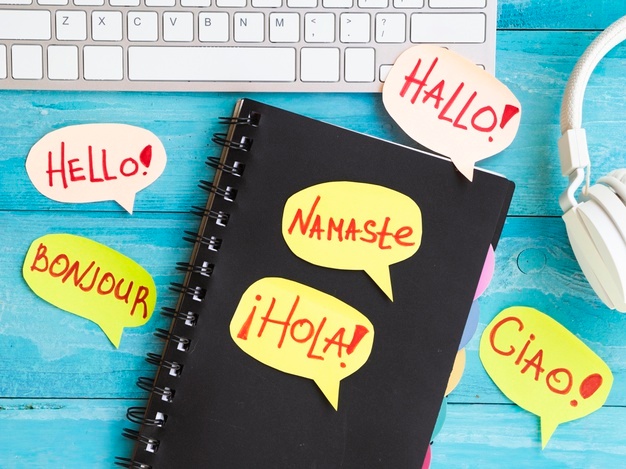 Z X C V B N M < , > . ? /
HALLO!
HELLO!
NAMASTE
BONJOUR
¡HOLA!
CIAO!